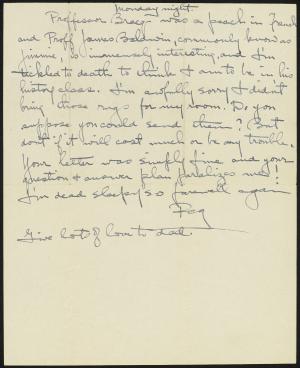 Monday night
Professor Bracq was a peach in French
and Proff James Baldwin, commonly known as
Jimmie, is immensely interesting, and I'm
tickled to death to think I am to be in his
history class. I'm awfully sorry I didn't
bring those rugs for my room. Do you
suppose you could send them? But
don't if it will cost much or be any trouble.
Your letter was simply fine and your
question & answer plan paralizes me!
I'm dead sleepy so farewell again
Peg
Give lots of love to dad.